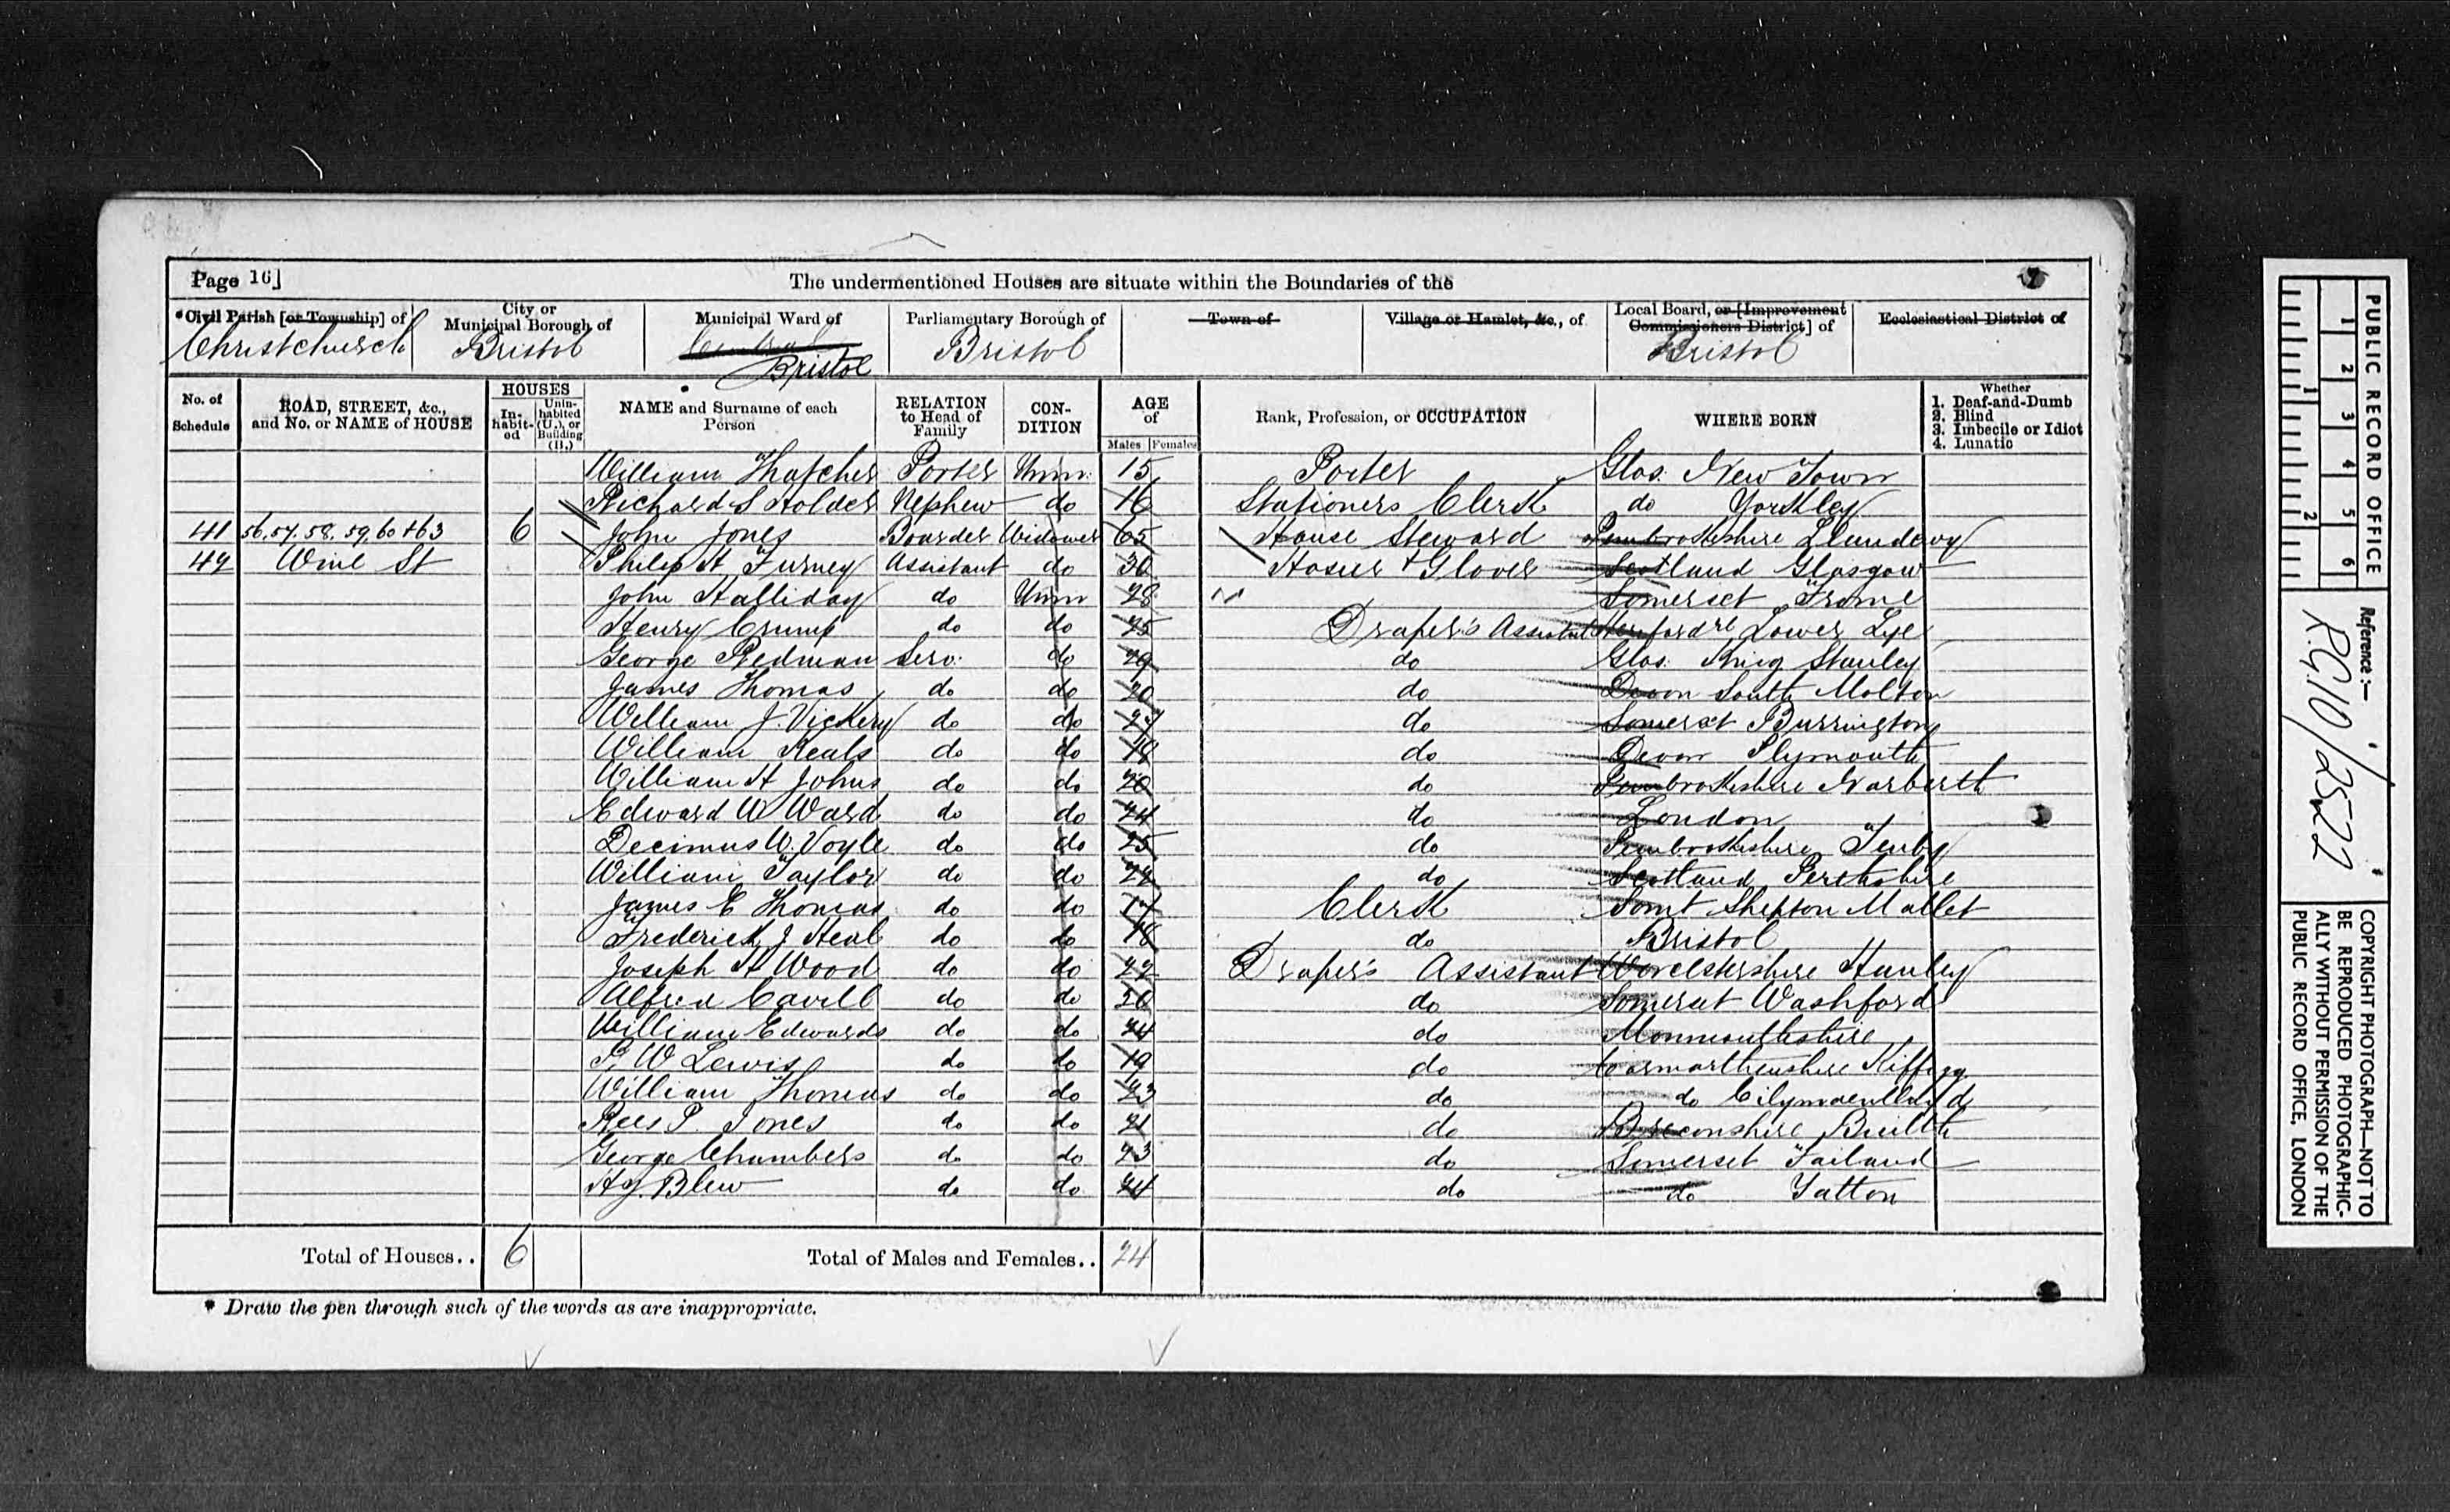 Page 16]
The undermentioned Houses are situate within the Boundaries of the
*Civil Parish [or Township] of
Christchurch
City or Municipal Borough of
Bristol
Municipal Ward of
Central
Bristol
Parliamentary Borough of
Bristol
Town of
Village or Hamlet, &c., of
Local Board, or [Improvement Commissioners District] of
Bristol
Ecclesiastical District of
No. of Schedule
ROAD, STREET, &c., and No. or NAME of HOUSE
HOUSES
Inhabited
Uninhabited (U.), or Building (B.)
NAME and Surname of each Person
RELATION to Head of Family
CONDITION
AGE of
Males Females
Rank, Profession, or OCCUPATION
WHERE BORN
Whether
1. Deaf-and-Dumb
2. Blind
3. Imbecile or Idiot
4. Lunatic
William Thatcher Porter Unm 15 Porter Glos. New Town
Richard S Holder Nephew do 16 Stationers Clerk do Yorkley
41 56, 57, 58, 59, 60 + 63 6 John Jones Boarder Widower 65 House Steward Pembrokeshire Llandewy
42 Wine St Philip H Turney Assistant do 30 Hosier + Glover Scotland Glasgow
John Halliday do Unm 28 Somerset Frome
Henry Crump do do 25 Draper's Assistant Herefordre Lower Lye
George Redman Serv. do 29 do Glos. King Stanley
James Thomas do do 20 do Devon South Molton
William J. Vickery do do 27 do Somerset Burrington
William Keals do do 18 do Devon Plymouth
William H Johns do do 20 do Pembrokeshire Narberth
Edward W Ward do do 24 do London
Decimus W. Voyle do do 25 do Pembrokeshire Tenby
William Taylor do do 22 do Scotland Perthshire
James E Thomas do do 17 Clerk Somt Shepton Mallet
Frederick J Heal do do 18 do Bristol
Joseph H Wood do do 22 Draper's Assistant Worcestershire Hanley
Alfred Cavill do do 20 do Somerset Washford
William Edwards do do 24 do Monmouthshire
P. W Lewis do do 19 do Carmarthenshire Kiffigg
William Thomas do do 23 do do
Rees P. Jones do do 21 do Breconshire Builth
George Chambers do do 23 do Somerset Failand
H J. Blew do do 24 do do Yatton
Total of Houses.. 6 Total of Males and Females.. 24
* Draw the pen through such of the words as are inappropriate.
PUBLIC RECORD OFFICE
1 2 3 4 5 6
1 2
Reference:-
R.G.10/2522
COPYRIGHT PHOTOGRAPH—NOT TO
BE REPRODUCED PHOTOGRAPHIC-
ALLY WITHOUT PERMISSION OF THE
PUBLIC RECORD OFFICE, LONDON